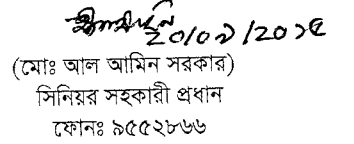 ২০/০৯/২০১৫
(মোঃ আল আমিন সরকার)
সিনিয়র সহকারী প্রধান
ফোনঃ ৯৫৫২৮৬৬